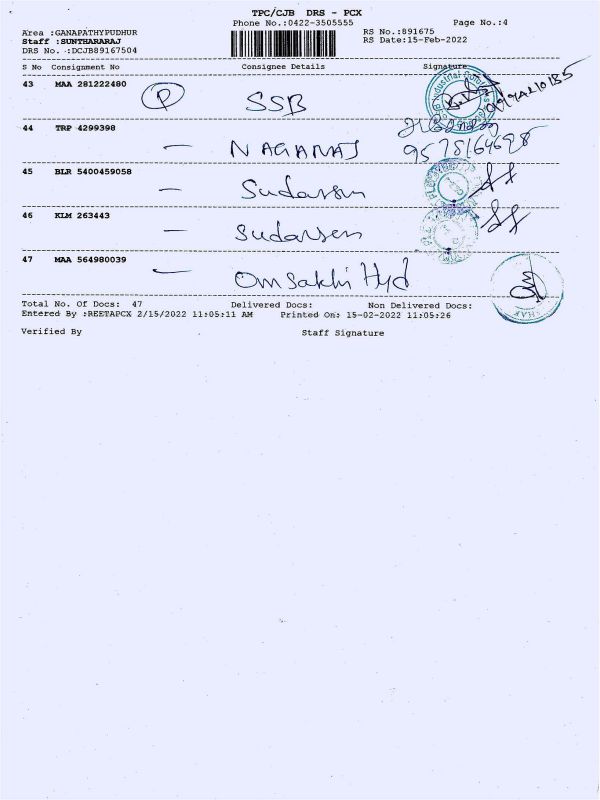 TPC/CJB DRS - PCX
Phone No.:0422-3505555 Page No.:4
Area :GANAPATHYPUDHUR RS No.:891675
Staff :SUNTHARARAJ RS Date:15-Feb-2022
DRS No. .:DCJB89167504
S No Consignment No Consignee Details Signature
43 MAA 281222480 P SSB
44 TRP 4299398 - NAGARAJ
9578164698
45 BLR 5400459058 - Sudarsen
46 KLM 263443 - Sudarsen
47 MAA 564980039 - Omsakhi Hyd
Total No. Of Docs: 47 Delivered Docs: Non Delivered Docs:
Entered By :REETAPCX 2/15/2022 11:05:11 AM Printed On: 15-02-2022 11:05:26
Verified By Staff Signature